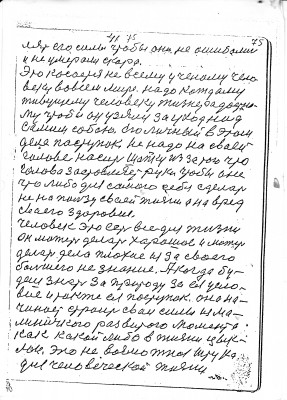 75
ляр его силы чтобы они не ошибались
и не умерали скора.
Это косается не всему ученому чело
веку во всем мире. надо каждаму
живущему человеку жизнерадосна
му чтобы он узнал за уход над
самим собою его личный в этом
деле поступок не надо на своей
голове насить шапку из за того что
голова заставляет руки чтобы оне
что либо для самого себя сделали
не на пользу своей жизни а на вред
своего здоровия.
Человек это есть все для жизни
он может делать харошое и может
делать дела плохие из за своего
большего не знание. А когда бу-
дешь знать за природу за её усло-
вие и также её поступок. она на-
чинает строит свои силы из ма-
ленького развитого момента
как какой либо в жизни цвик-
лок. Это не возможная штука
для человеческой жизни